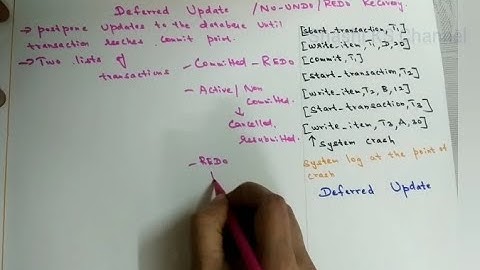 Deferred Update /NO-UNDO/REDO Recovery.
→ postpone updates to the database until
transaction reaches commit point.
→ Two lists of
transactions
- Committed - REDO
- Active/Non
Committed.
↓
Cancelled,
Resubmitted.
- REDO
[start_transaction, T1]
[write_item, T1, D, 20]
[commit, T1]
[start_transaction, T2]
[write_item, T2, B, 12]
[start_transaction, T3]
[write_item, T3, A, 25]
↑ system crash
System log at the point of
crash
Deferred Update